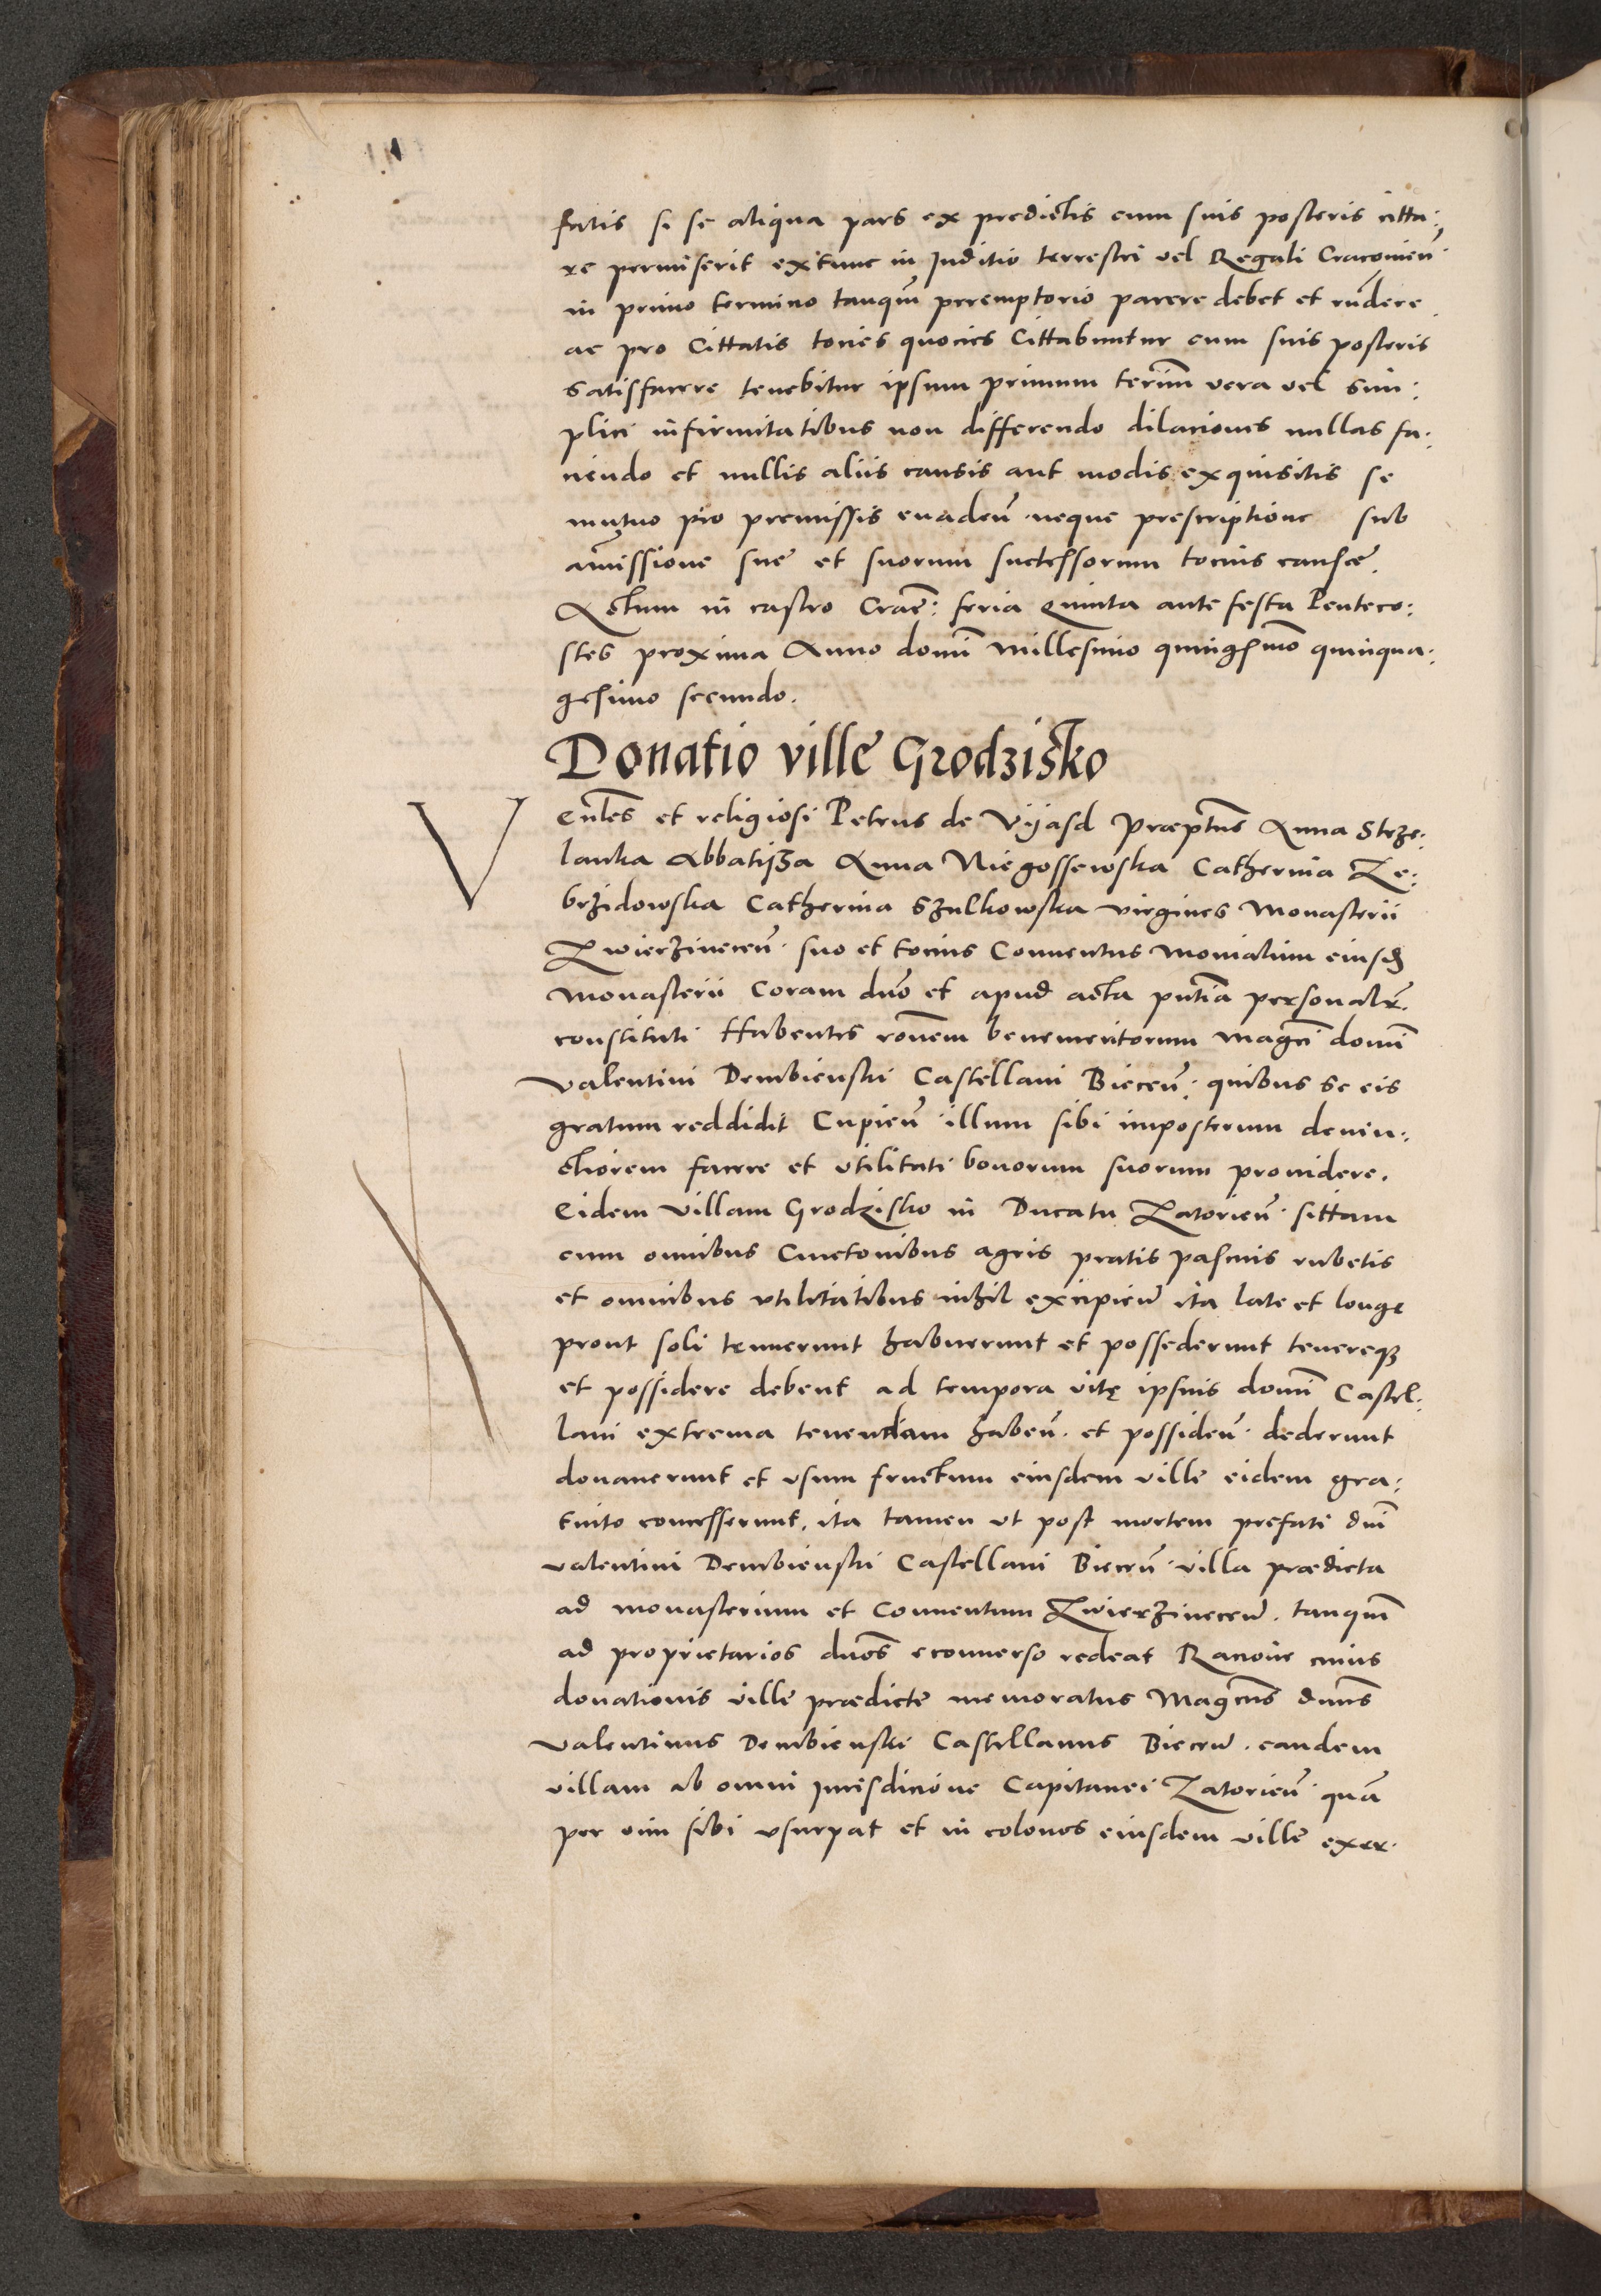 fatis si se aliqua pars ex predictis cum suis posteris citta:
re permiserit extunc in Juditio terrestri vel Regali Cracouien̄
in primo termino tanqm̄ peremptorio parere debet et rn̄dere
ac pro Cittatis tocies quocies Cittabuntur cum suis posteris
satisfacere tenebitur ipsum primum termīn vera vel sim:
plici infirmitatibus non differendo dilaciones nullas fa:
ciendo et nullis aliis causis aut modis exquisitis se
mutuo pro premissis euaden̄ neque prescriptione sub
amissione sue et suorum successorum tocius cause.
Actum in castro Crac̄: feria Quinta ante festa Penteco:
stes proxima Anno domī Millesimo quingesmō quinqua:
gesimo secundo.
Donatio ville Grodzisko
Venl̄es et religiosi Petrus de Vijasd Præptūs Anna Strze:
lanka Abbatissa Anna Niegossewska Catherina Ze:
brzidowska Catherina Szulkowska virgines Monasterii
Zwierzinecen̄ suo et tocius Conuentus Monialium eiusd
Monasterii Coram duo et apud acta pn̄tia personalr̄
constituti Habentes ronēm benemeritorum Magcī domī
Valentini Dembienski Castellani Biecen̄ quibus se eis
gratum reddidit Cupien̄ illum sibi imposterum deuin:
ctiorem facere et vtilitati bonorum suorum prouidere.
Eidem villam Grodzisko in Ducatu Zatorien̄ sittam
cum omnibus Cmetonibus agris pratis pascuis rubetis
et omnibus vtilitatibus nihil excipien̄ ita late et longe
prout soli tenuerunt habuerunt et possederunt tenereqz
et possidere debent ad tempora vitę ipsius domī Castel:
lani extrema tenendam haben̄. et possiden̄. dederunt
donauerunt et vsum fructum eiusdem ville eidem gra:
tuito concesserunt, ita tamen ut post mortem prefati dnī
Valentini Dembienski Castellani Biecen̄ villa prædicta
ad monasterium et Conuentum Zwierzinecen̄. tanqm̄
ad proprietarios dnōs econuerso redeat Racione cuius
donationis ville prædicte memoratus Magcūs dnūs
Valentinus Dembienski Castellanus Biecen̄. eandem
villam ab omni Jurisdicione Capitanei Zatorien̄ quā
per vim sibi vsurpat et in colonos eiusdem ville exer.